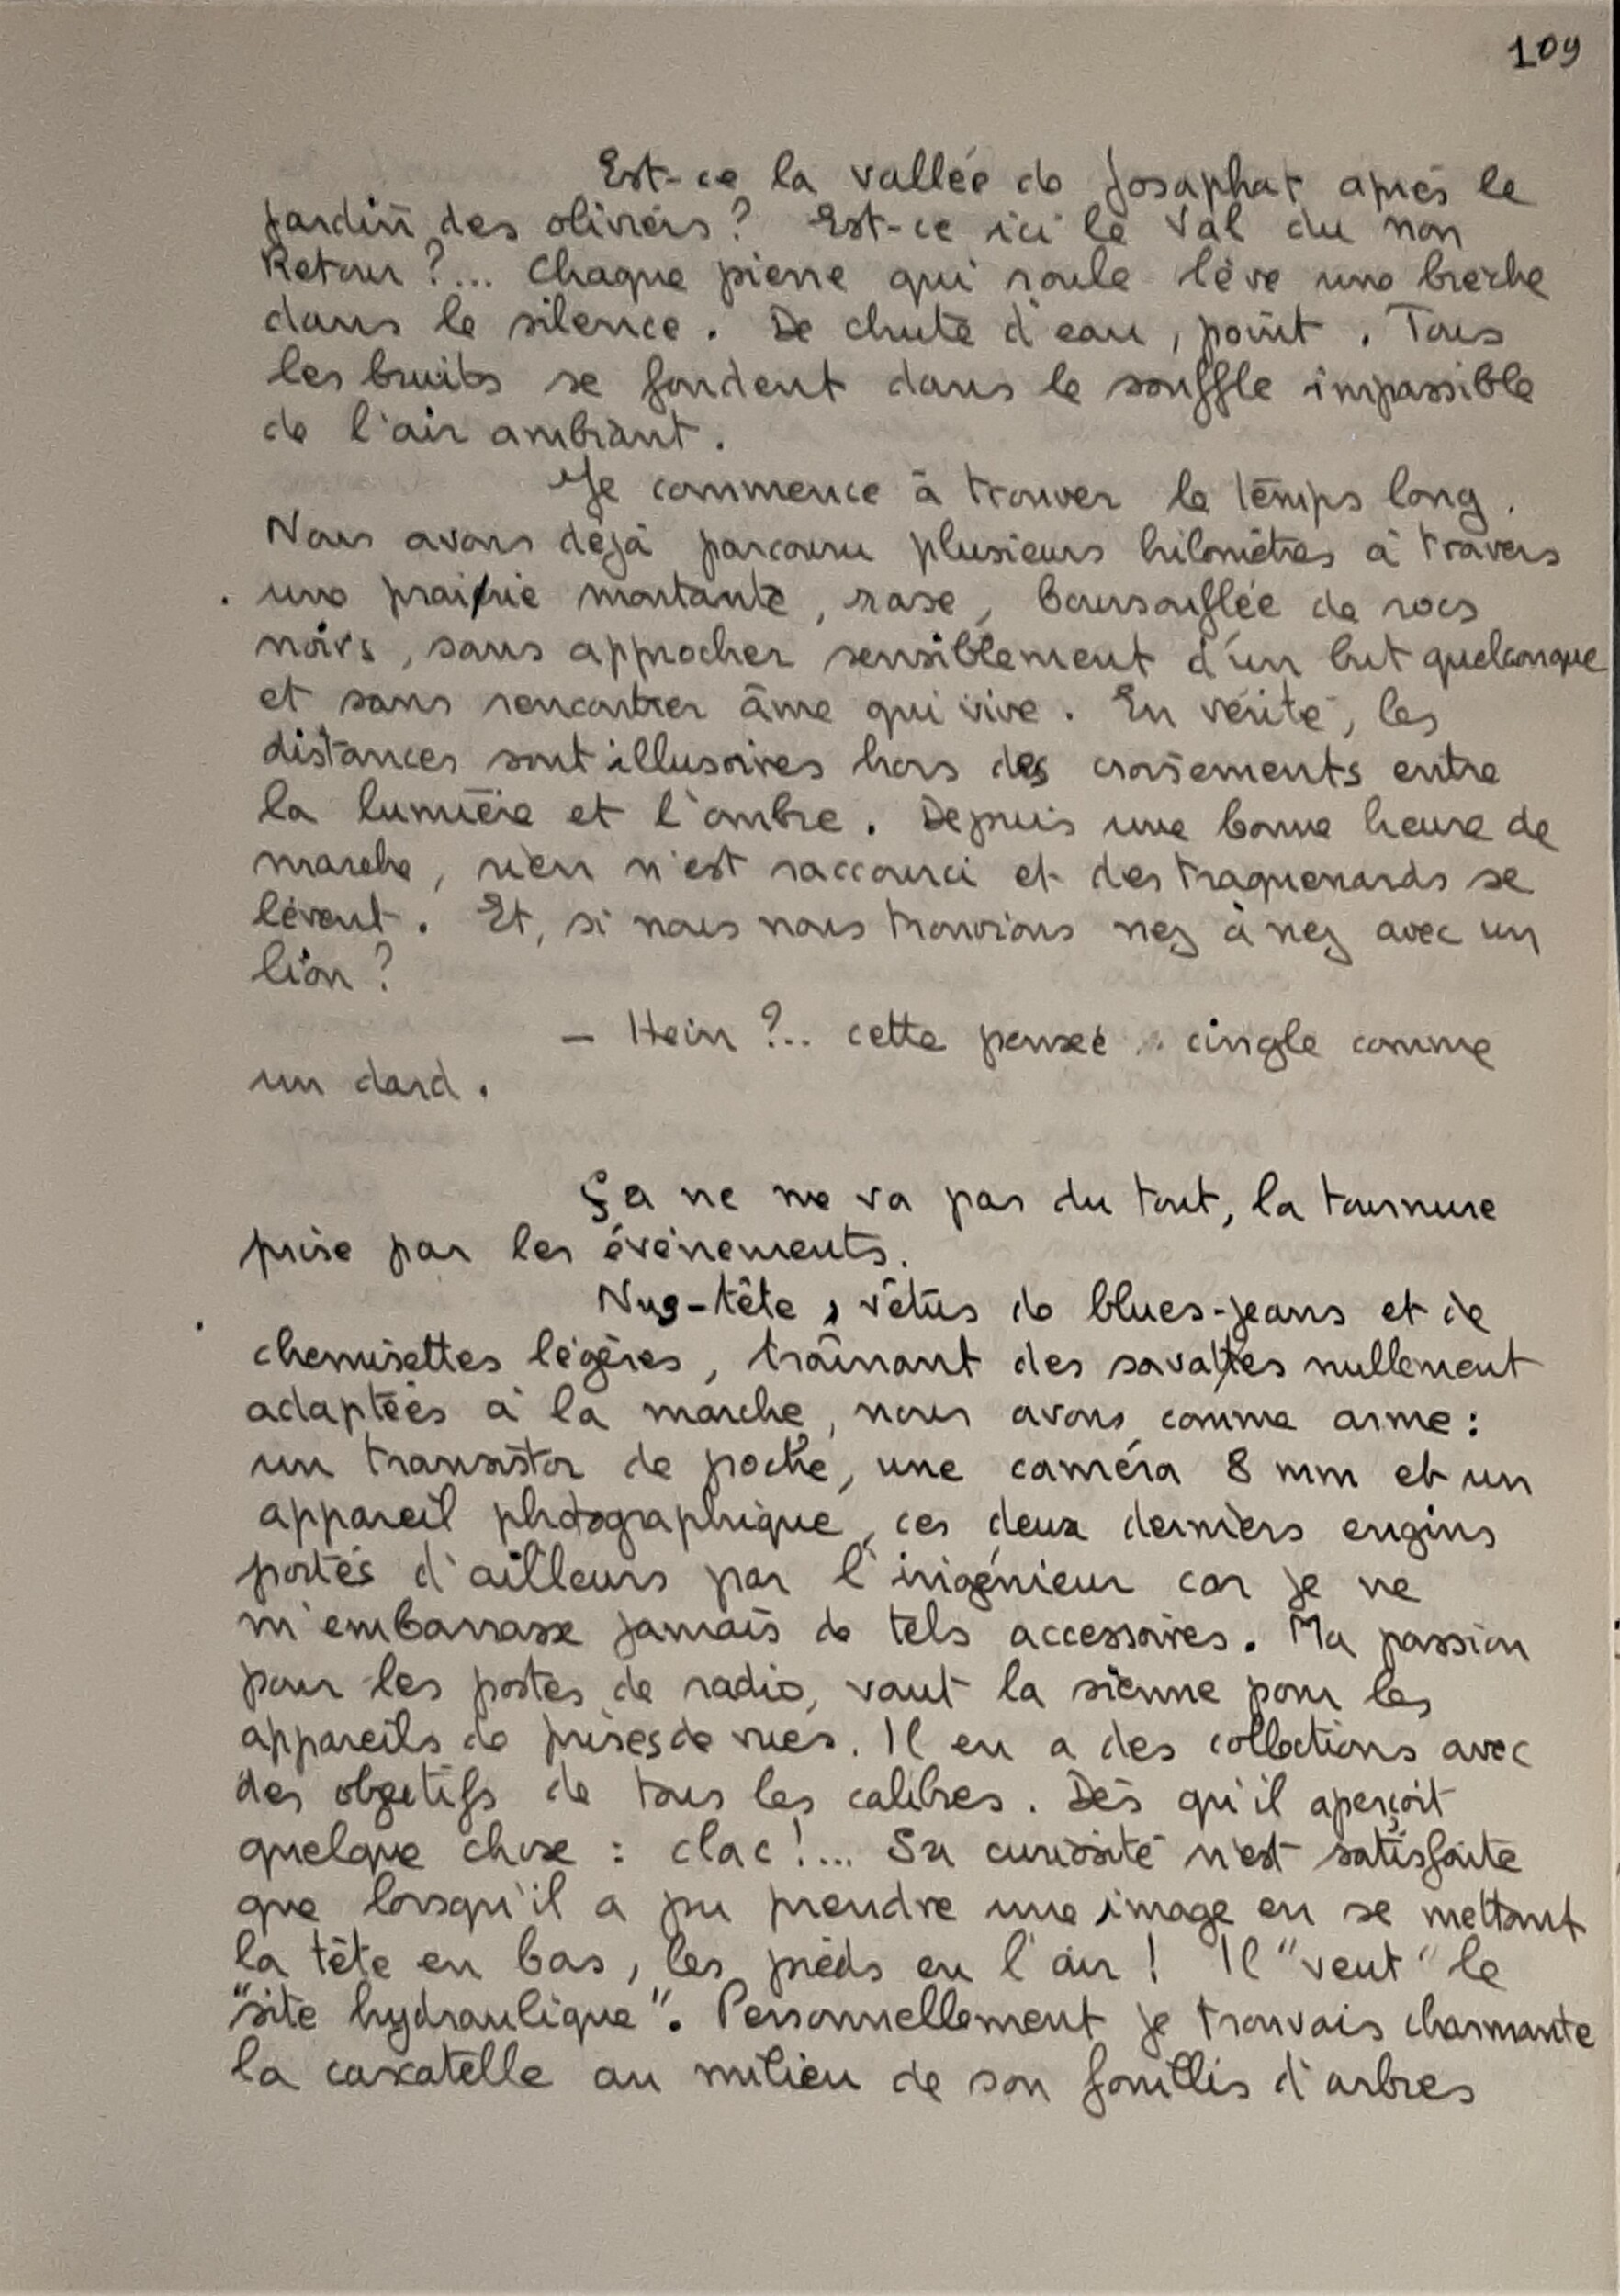 109
Est-ce la vallée de Josaphat après le
jardin des oliviers ? Est-ce ici le Val du non
Retour ?... Chaque pierre qui roule lève une brèche
dans le silence. De chute d'eau, point. Tous
les bruits se fondent dans le souffle impassible
de l'air ambiant.
Je commence à trouver le temps long.
Nous avons déjà parcouru plusieurs kilomètres à travers
une prairie montante, rase, boursouflée de rocs
noirs, sans approcher sensiblement d'un but quelconque
et sans rencontrer âme qui vive. En vérité, les
distances sont illusoires hors des croisements entre
la lumière et l'ombre. Depuis une bonne heure de
marche, rien n'est raccourci et des traquenards se
lèvent. Et, si nous nous trouvions nez à nez avec un
lion ?
— Hein ?.. cette pensée cingle comme
un dard.
Ça ne me va pas du tout, la tournure
prise par les événements.
Nus-tête, vêtus de blues-jeans et de
chemisettes légères, traînant des savates nullement
adaptées à la marche, nous avons comme arme :
un transistor de poche, une caméra 8 mm et un
appareil photographique, ces deux derniers engins
portés d'ailleurs par l'ingénieur car je ne
m'embarrasse jamais de tels accessoires. Ma passion
pour les postes de radio, vaut la sienne pour les
appareils de prises de vues. Il en a des collections avec
des objectifs de tous les calibres. Dès qu'il aperçoit
quelque chose : clac !... Sa curiosité n'est satisfaite
que lorsqu'il a pu prendre une image en se mettant
la tête en bas, les pieds en l'air ! Il "veut" le
"site hydraulique". Personnellement je trouvais charmante
la cascatelle au milieu de son fouillis d'arbres